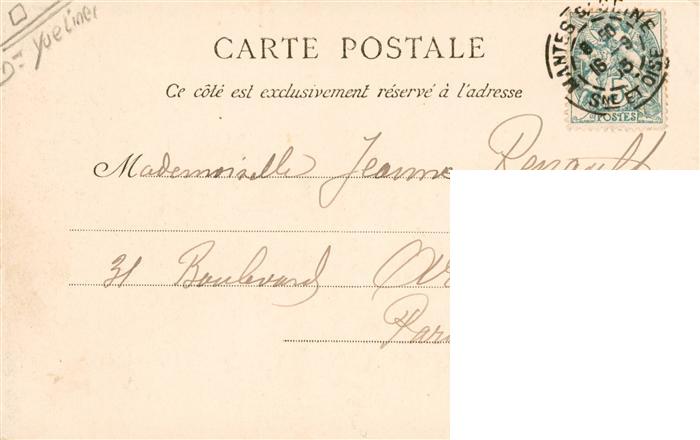 Yve Liner
CARTE POSTALE
Ce côté est exclusivement réservé à l'adresse
MANTES S. SEINE
SNE ET OISE
POSTES
Mademoiselle Jeanne Renault
31 Boulevard